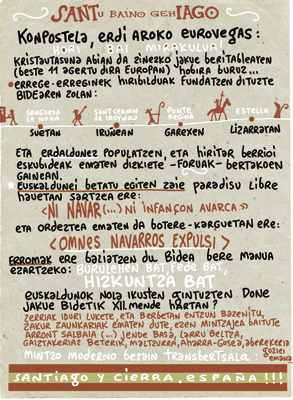 SANTu BAINO GEHIAGO
KONPOSTELA, ERDI AROKO EUROVEGAS:
HORI BAI MIRAKULUA!
KRISTAUTASUNA ABIAN DA ZINEZKO JAKUE BERITABLEAREN
(BESTE 11 AGERTU DIRA EUROPAN) HOBIRA BURUZ...
ERREGE-ERREGINEK HIRIBILDUAK FUNDATZEN DITUZTE
BIDEAREN ZOLAN:
SANGUESA LA NOVA SANT CERNIN DE IRUYNÓJ PONTE REGINA ESTELLA
SUETAN IRUÑEAN GAREXEN LIZARRATAN
ETA ERDALDUNEZ POPULATZEN, ETA HIRITAR BERRIOI
ESKUBIDEAK EMATEN DIZKIETE -FORUAK- BERTAKOEN
GAINEAN.
EUSKALDUNEI BETATU EGITEN ZAIE PARADISU LIBRE
HAUETAN SARTZEA ERE:
<NI NAVAR(...) NI INFANÇON AVARCA>
ETA ORDEZTEA EMATEN DA BOTERE-KARGUETAN ERE:
<OMNES NAVARROS EXPULSI>
ERROMAK ERE BALIATZEN DU BIDEA BERE MANUA
EZARTZEKO: BURULEHEN BAT, FEDE BAT,
HIZKUNTZA BAT,
EUSKALDUNOK NOLA IKUSTEN GINTUZTEN DONE
JAKUE BIDETIK XII. MENDE HARTAN?
ZERRIAK IDURI LUKETE, ETA BERBETAN ENTZUN BAZENITU,
ZAKUR ZAUNKARIAK EMATEN DUTE, EZEN MINTZAJEA BAITUTE
ARROTZ SALBAIA (...) JENDE BASA, LARRU BELTZA,
GAIZTAKERIAZ BETERIK, MALTZURRA, AHARRA-GOSEA, ABEREKERIA GUZIEI EMANA
MINTZO MODERNO BEZAIN TRANSBERTSALA:
SANTIAGO Y CIERRA, ESPAÑA!!!